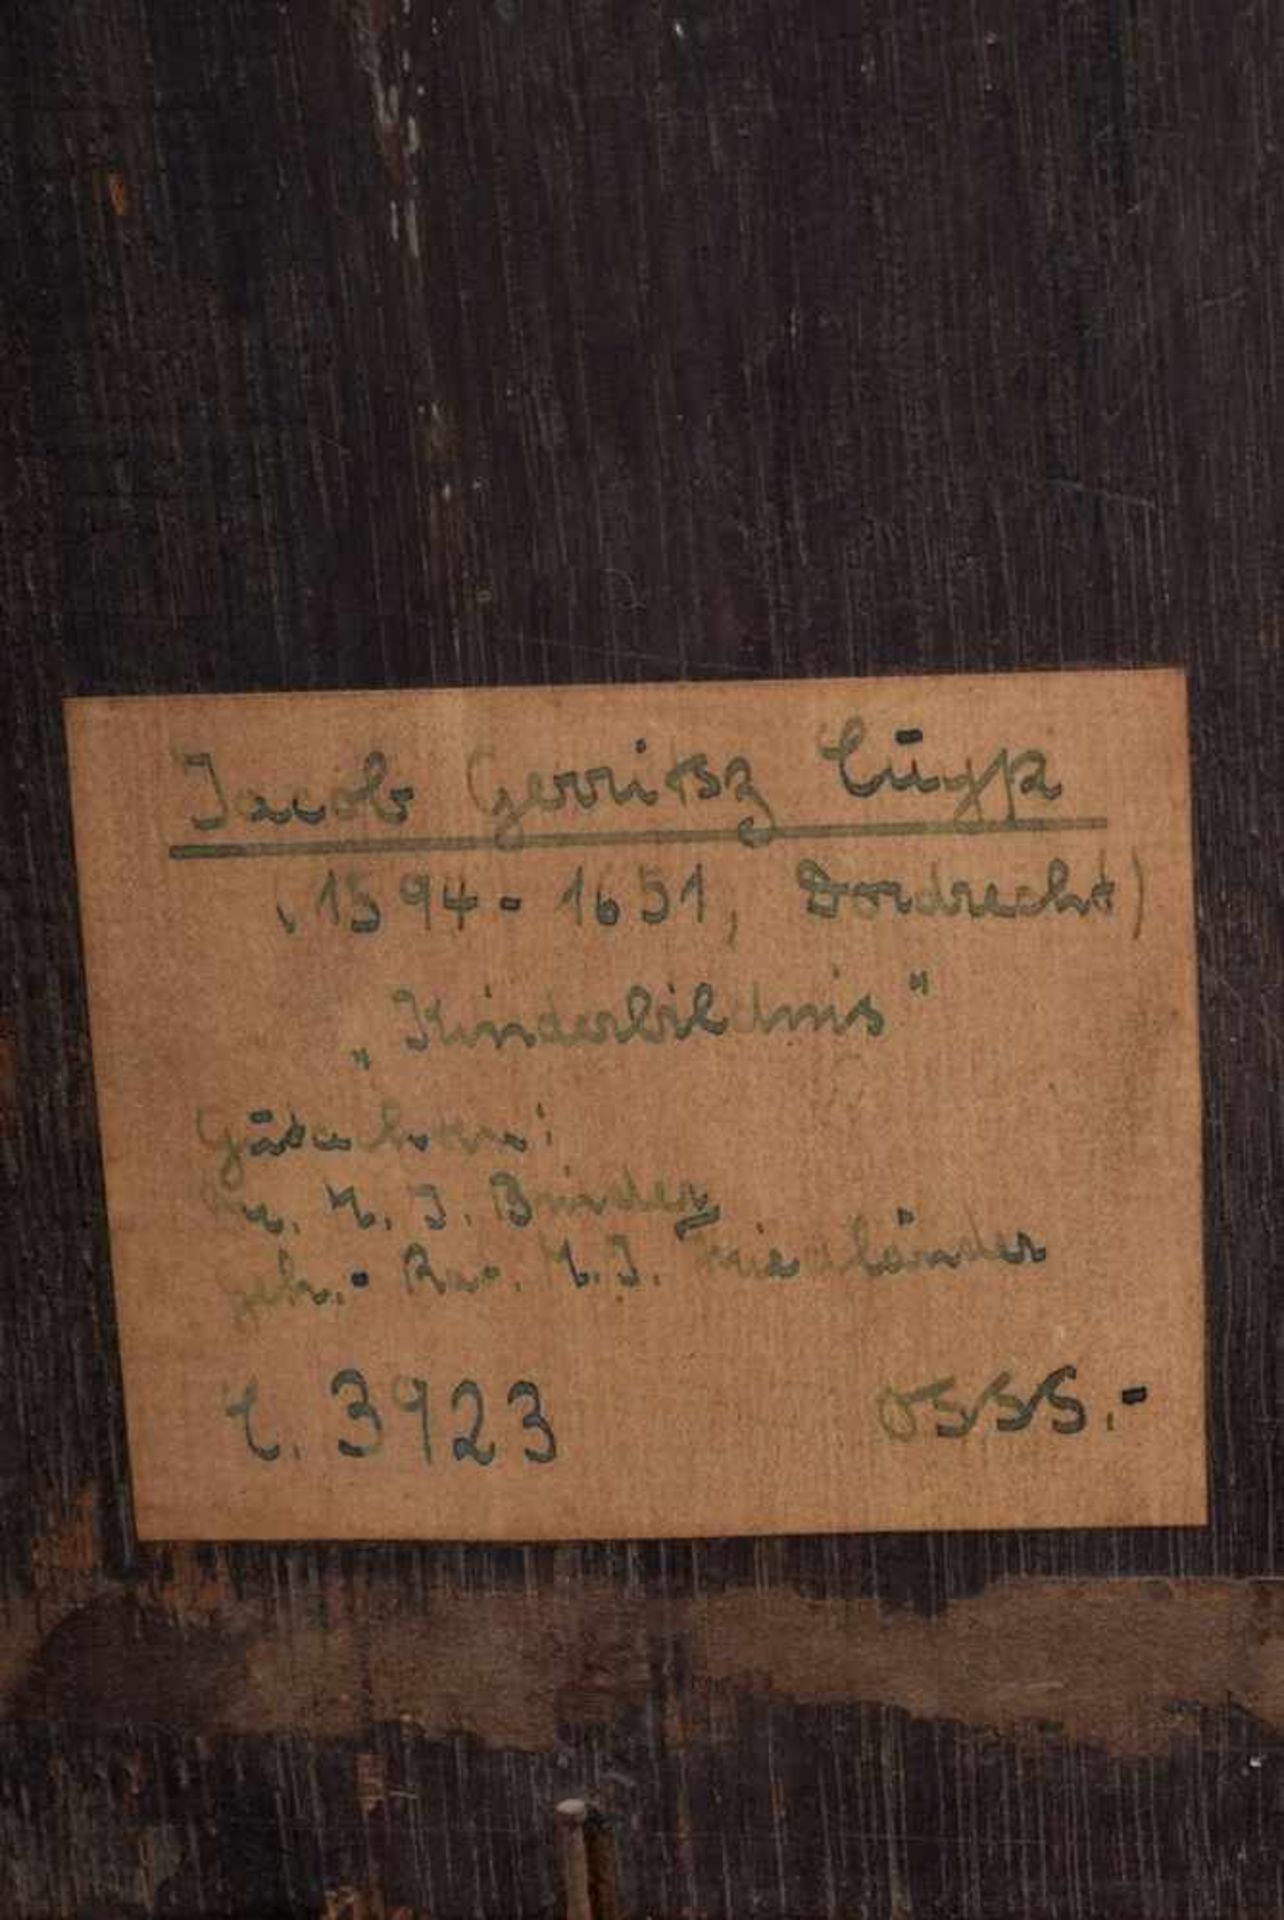 Jacob Gerritsz Cüyp
(1594 - 1651, Dordrecht)
„Kinderbildnis“
Gutachten:
Dr. M. J. Binder
Geh.- Rat. M. J. Friedländer
C. 3923 OSSS.-